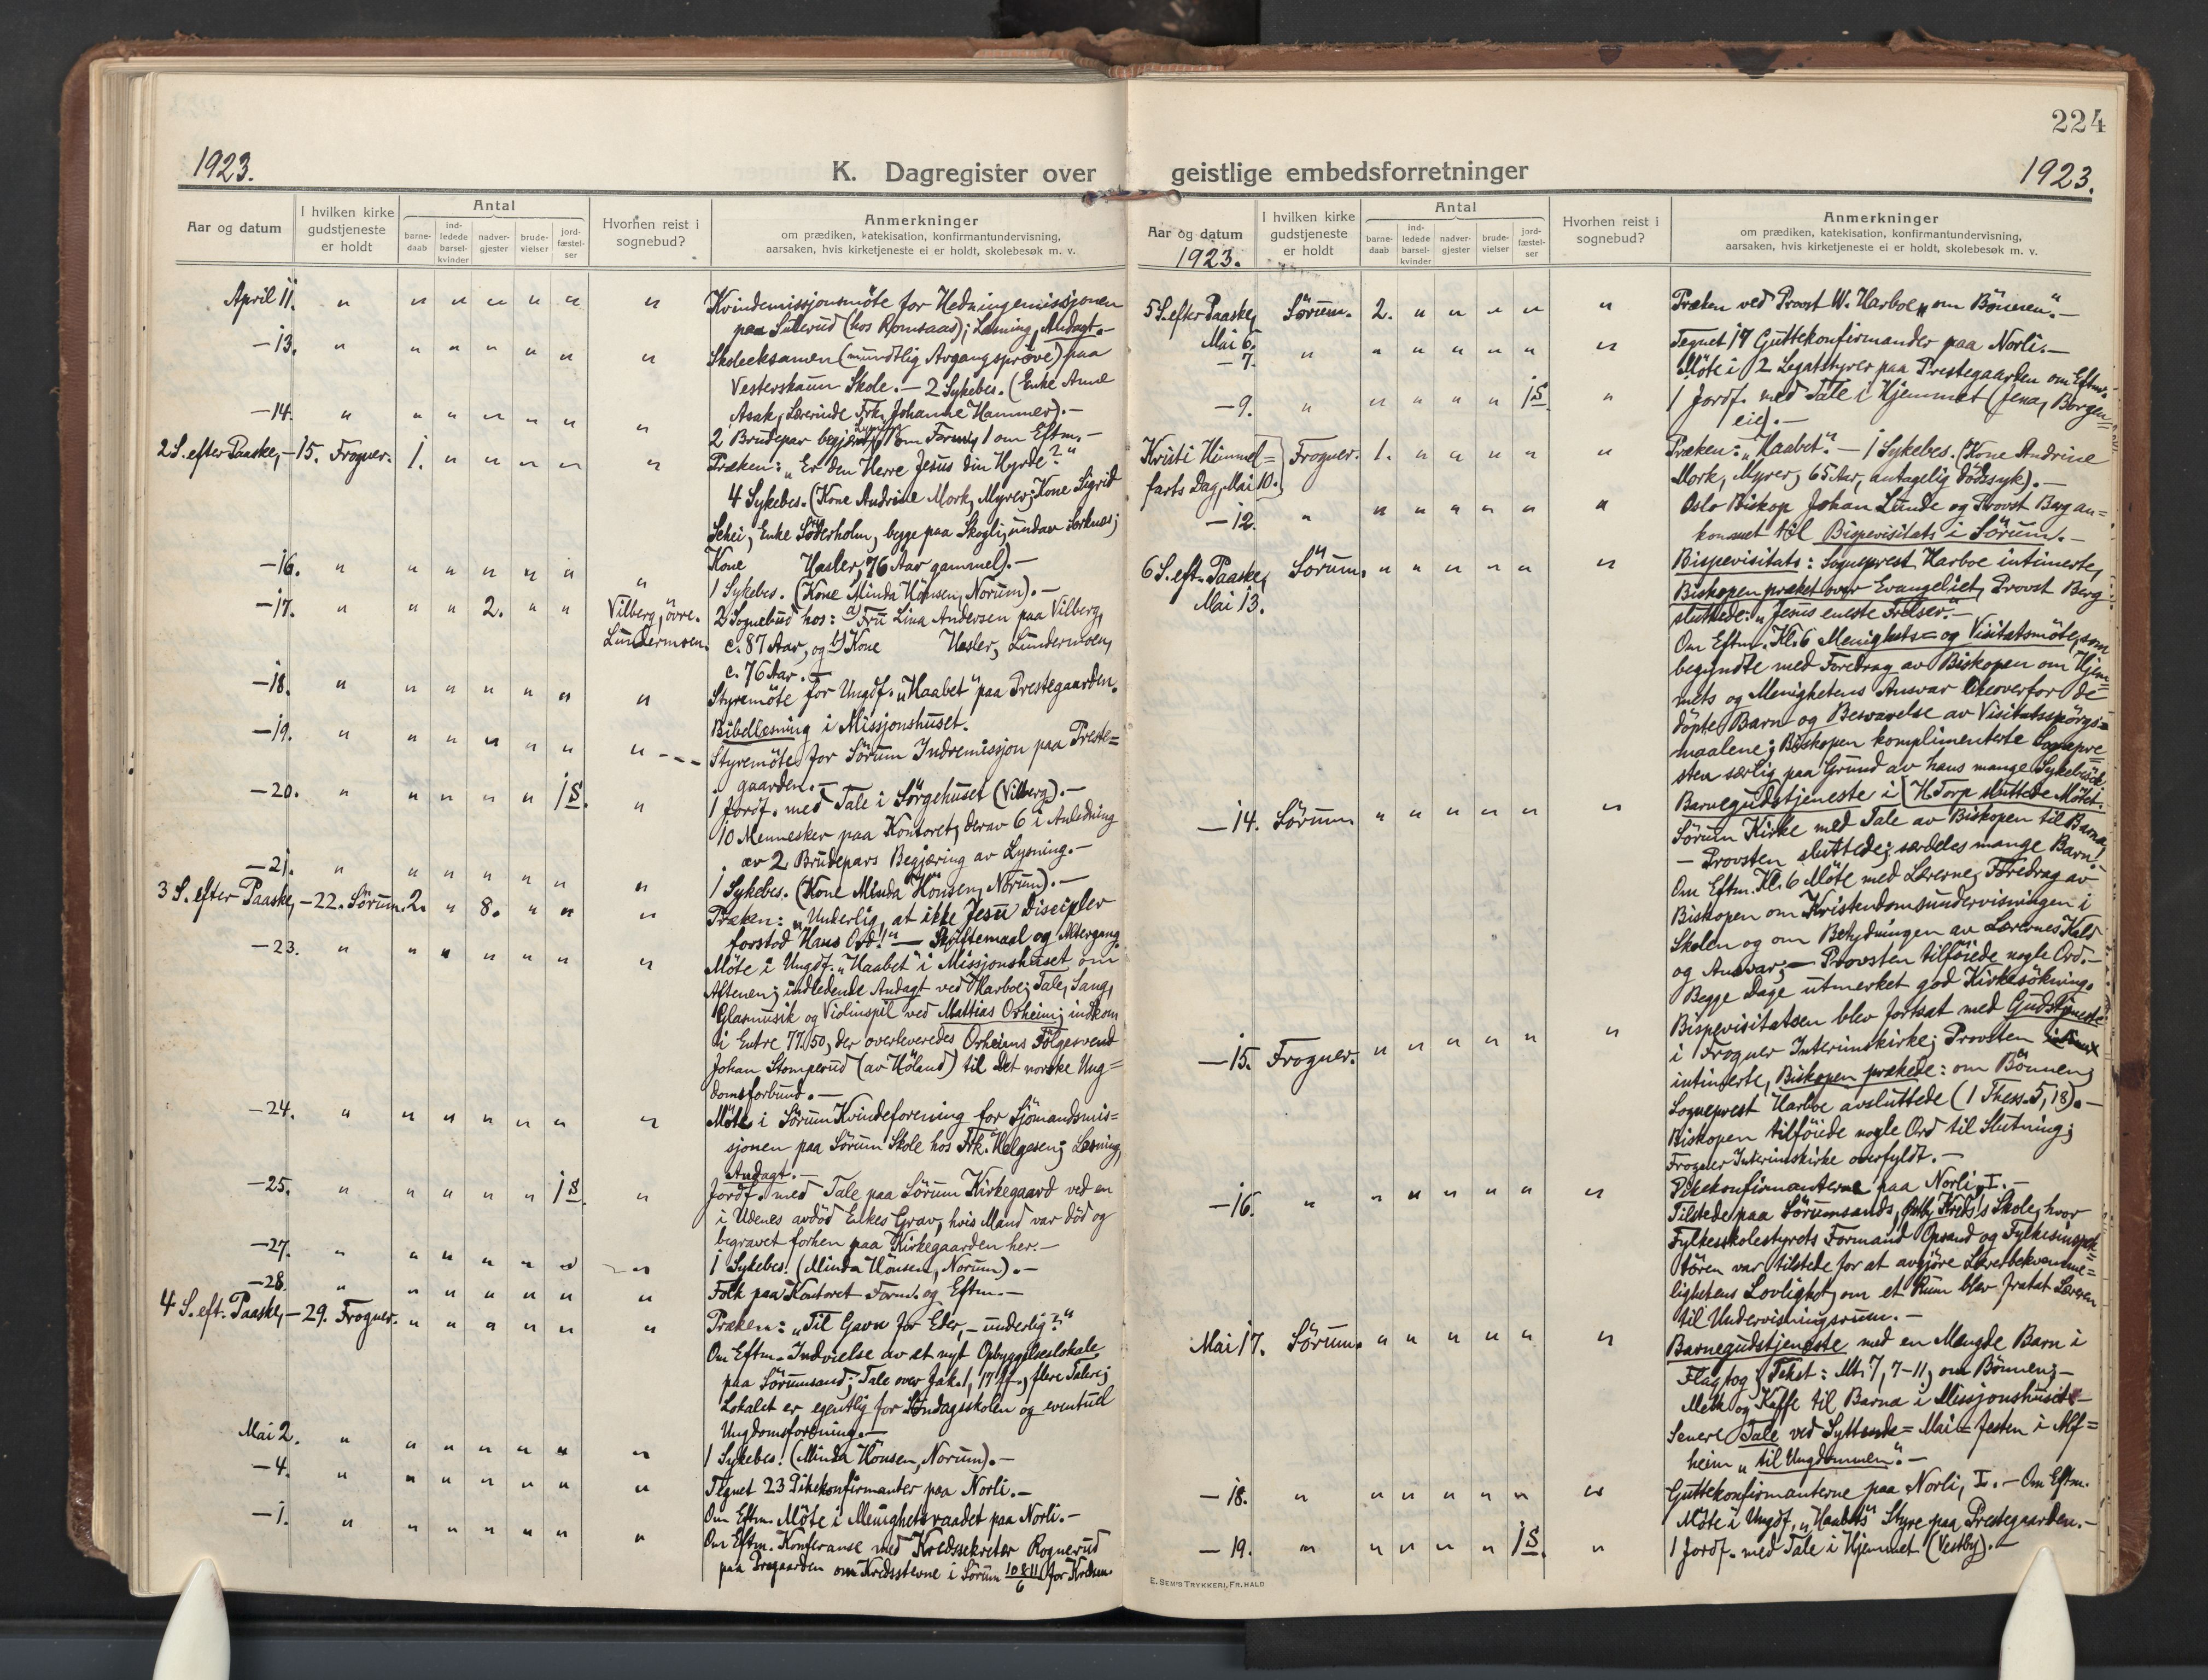 224
1923.
K. Dagregister over
geistlige embedsforretninger
1923.
Aar og datum
I hvilken kirke gudstjeneste er holdt
Antal
barne-daab
ind-ledede barsel-kvinder
nadver-gjester
brude-vielser
jord-fæstel-ser
Hvorhen reist i sognebud?
Anmerkninger
om prædiken, katekisation, konfirmantundervisning,
aarsaken, hvis kirketjeneste ei er holdt, skolebesøk m. v.
April 11. " " " " " " " Kvindemissjonsmöte for Hedningemissjonen
paa Suterud (hos Romsaas); Læsning, Andagt.-
-13. " " " " " " " Skoleeksamen (mundtlig Avgangsprøve) paa
Vesterskaun Skole. - 2 Sykebes. (Enke Anne
Asak, Lærerinde Frk. Johanne Hammer). -
-14. " " " " " " " 2 Brudepar begjært Lysning, 1 om Formidg. 1 om Eftm. -
2 S. efter Paaske, -15. Frogner. 1. " " " " " Præken: "Er den Herre Jesus din Hyrde?"
4 Sykebes. (Kone Andrine Mork, Myrer; Kone Sigrid
Schei, Enke Söderholm, begge paa Skogli, undav Sørknes;
Kone Hasler, 76 Aar gammel). -
-16. " " " " " " " 1 Sykebes. (Kone Minda Hönsen, Norum). -
-17. " " " 2. " " Vilberg, övre. 2 Sognebud hos: a) Fru Lina Andersen paa Vilberg,
Lundermoen. c. 87 Aar, og b) Kone Hasler, Lundermoen,
c. 76 Aar. -
-18. " " " " " " " Styremöte for Ungdf. "Haabet" paa Prestegaarden.
Bibellæsning i Missjonshuset.
-19. " " " " " " " Styremöte for Sörum Indremissjon paa Preste=
gaarden. -
-20. " " " " " 1 S. " 1 Jordf. med Tale i Sørgehuset (Vilberg). -
10 Mennesker paa Kontoret, derav 6 i Anledning
av 2 Brudepars Begjæring av Lysning. -
-21. " " " " " " " 1 Sykebes. (Kone Minda Hönsen, Norum). -
3 S. efter Paaske, -22. Sörum. 2. " 8. " " " Præken: "Underlig, at ikke Jesu Disciplev
forstod Hans Ord!" - Skriftemaal og Altergang.
-23. " " " " " " " Möte i Ungdf. "Haabet" i Missjonshuset om
Aftenen; indledende Andagt ved Harboe; Tale, Sang,
Glasmusik og Violinspil ved Mattias Orheim; indkom
i Entre 77.50, der overleveredes Orheims Fölgesvend
Johan Stomperud (av Höland) til Det norske Ung=
domsforbund. -
-24. " " " " " " " Möte i Sörum Kvindeforening for Sjömandsmis=
sjonen paa Sörum Skole hos Frk. Helgesen; Læsning,
Andagt. -
-25. " " " " " 1 S. " Jordf. med Tale paa Sörum Kirkegaard ved en
i Udenes avdöd Enkes Grav, hvis Mand var död og
begravet forhen paa Kirkegaarden her. -
-27. " " " " " " " 1 Sykebes! (Minda Hönsen, Norum). -
-28. " " " " " " " Folk paa Kontoret Form. og Eftm. -
4 S. eft. Paaske, -29. Frogner. " " " " " " Præken: "Til Gavn for Eder, - underlig?"
Om Eftm. Indvielse av et nyt Opbyggelseslokale
paa Sörumsand; Tale over Jak. 1, 17 ff., flere Talere;
Lokalet er egentlig for Söndagsskolen og eventuel
Ungdomsforening. -
Mai 2. " " " " " " " 1 Sykebes! (Minda Hönsen, Norum). -
-4. " " " " " " " Tegnet 23 Pikekonfirmanter paa Norli. -
Om Eftm. Möte i Menighetsraadet paa Norli. -
-1. " " " " " " " Om Eftm. Konferanse med Kredssekretær Rognerud
paa Prgaarden om Kredsstevne i Sörum 10 & 11/6 for Kredsen.
Aar og datum
1923.
I hvilken kirke gudstjeneste er holdt
Antal
barne-daab
ind-ledede barsel-kvinder
nadver-gjester
brude-vielser
jord-fæstel-ser
Hvorhen reist i sognebud?
Anmerkninger
om prædiken, katekisation, konfirmantundervisning,
aarsaken, hvis kirketjeneste ei er holdt, skolebesøk m. v.
5 S. efter Paaske, Sörum. 2. " " " " " Præken ved Provst W. Harboe "om Bönnen". -
Mai 6.
-7. " " " " " " " Tegnet 19 Guttekonfirmander paa Norli. -
Möte i 2 Legatstyrer paa Prestegaarden om Eftm. -
-9. " " " " " 1 S. " 1 Jordf. med Tale i Hjemmet (Jena, Borgen
eie). -
Kristi Himmel= Frogner. 1. " " " " " Præken: "Haabet". - 1 Sykebes. (Kone Andrine
farts Dag, Mai 10. Mork, Myrer, 65 Aar, antagelig dödssyk). -
-12. " " " " " " " Oslo Biskop Johan Lunde og Provst Berg an=
kommet til Bispevisitats i Sörum. -
6 S. eft. Paaske, Sörum. " " " " " " Bispevisitats: Sogneprest Harboe intimerte,
Mai 13. Biskopen præket over Evangeliet, Provst Berg
sluttede: "Jesus eneste Frelser". -
Om Eftm. Kl. 6 Menighets= og Visitatsmöte, som
begyndte med Foredrag av Biskopen om Hjem=
mets og Menighetens Ansvar likeoverfor de
döpte Barn og Besvarelse av Visitatsspörgs=
maalene; Biskopen komplimenterte Sognepre
sten særlig paa Grund av hans mange Sykebesök.
H. Torp sluttede Mötet.
-14. Sörum " " " " " " Barnegudstjeneste i
Sörum Kirke med Tale av Biskopen til Barna,
- Provsten sluttede; særdeles mange Barn! -
Om Eftm. Kl. 6 Möte med Lærerne; Foredrag av
Biskopen om Kristendomsundervisningen i
Skolen og om Betydningen av Lærernes Kald
og Ansvar; - Provsten tilföiede nogle Ord. -
Begge Dage utmerket god Kirkesökning.
-15. Frogner. " " " " " " Bispevisitatsen blev fortsat med Gudstjeneste
i Frogner Interimskirke; Provsten
intimerte, Biskopen prækede: om Bönnen;
Sogneprest Harboe avsluttede (1 Thess. 5, 18). -
Biskopen tilföiede nogle Ord til Slutning;
Frogner Interimskirke overfyldt. -
-16. " " " " " " " Pikekonfirmanterne paa Norli, I. -
Tilstede paa Sörumsands, Östby Kreds's Skole, hvor
Fylkesskolestyrets Formand Opsand og Fylkesinspek=
tören var tilstede for at avgjöre Lærerbekvemme=
lighetens Lovlighet, om et Rum blev fratat Læreren
til Undervisningsrum. -
Mai 17. Sörum. " " " " " " Barnegudstjeneste med en Mengde Barn i
Flagtog; Tekst: Mt. 7, 7-11, om Bönnen; -
Melk og Kaffe til Barna i Missjonshuset -
Senere Tale ved Syttende= Mai= festen i Alf=
heim "til Ungdommen". -
-18. " " " " " " " Guttekonfirmanterne paa Norli, I. - Om Eftm.
Möte i Ungdf. "Haabets" Styre paa Prestegaarden. -
-19. " " " " " 1 S. " 1 Jordf. med Tale i Hjemmet (Vestby). -
E. SEM'S TRYKKERI, FR.HALD